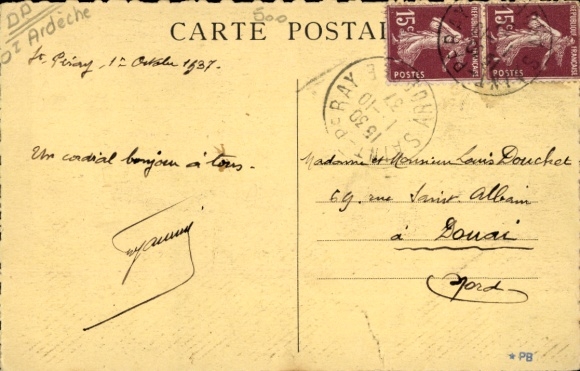 CARTE POSTAL
500
DD
07 Ardèche
15c
REPUBLIQUE FRANÇAISE
POSTES
15c
REPUBLIQUE FRANÇAISE
POSTES
SAINT-PERAY
ARDECHE
1530
1-10
37
St Péray, 1er Octobre 1937.
Un cordial bonjour à tous.
Madame et Monsieur Louis Douchet
59, rue Saint Albain
à Douai
Nord
*PB